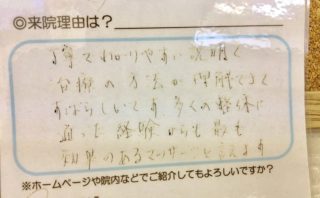 ◎来院理由は?
丁寧でわかりやすい説明で
治療の方法が理解でき
すばらしいです。多くの
経験からも最も
効果のあるマッサージと言えます
※ホームページや院内などでご紹介してもよろしいですか?